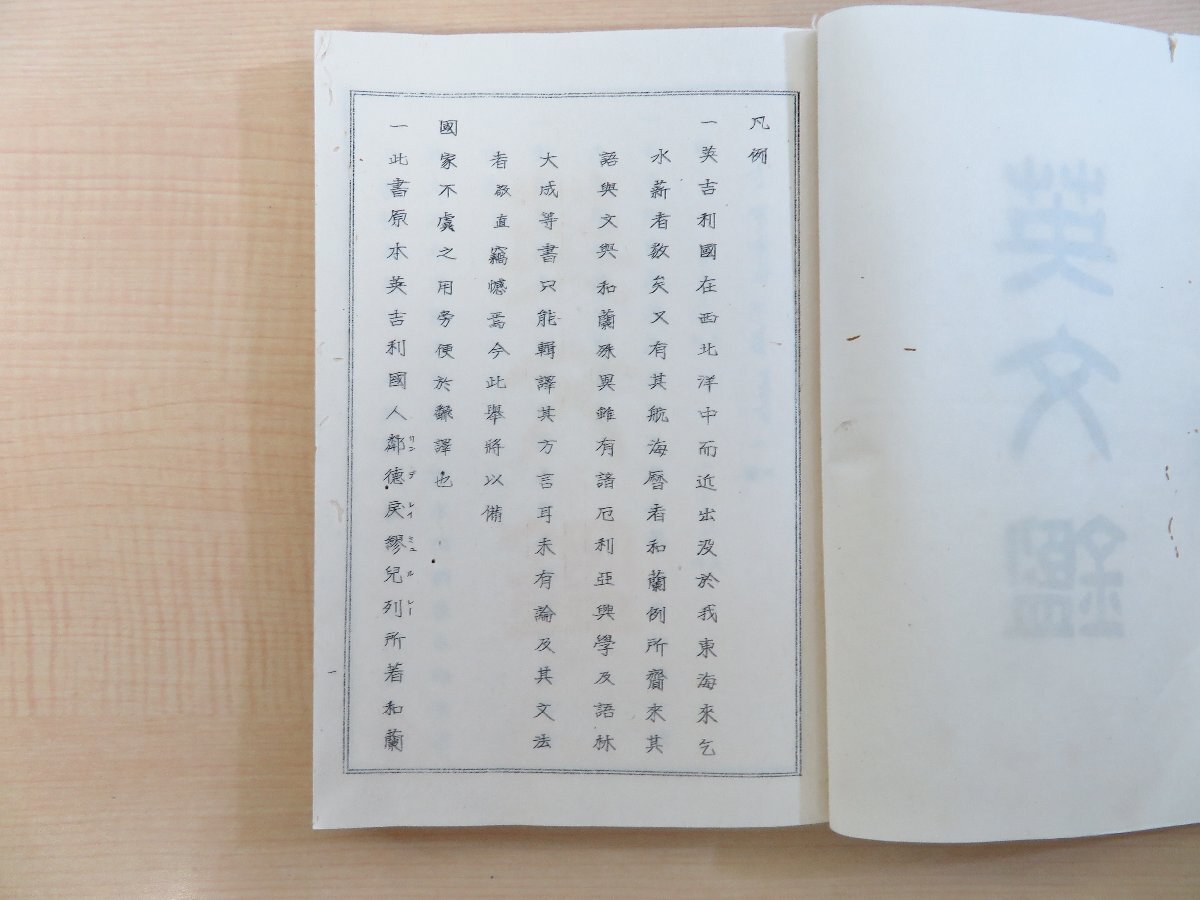 英文鑑
凡例
一英吉利國在西北洋中而近出没於我東海來乞
水薪者数矣又有其航海暦者和蘭例所齎來其
語與文與和蘭殊異雖有諳厄利亞興學及語林
大成等書只能輯譯其方言耳未有論及其文法
者敬直竊憾焉今此舉將以備
國家不虞之用旁便於飜譯也
一此書原本英吉利國人鄰德戻繆兒列所著和蘭
リンデレイミュルレー
一